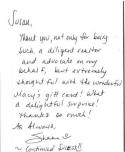 Susan,
Thank you, not only for being
such a diligent realtor
and advocate on my
behalf, but extremely
thoughtful with the wonderful
Macy's gift card! What
a delightful surprise!
Thanks so much!
As Always,
~ Continued Success